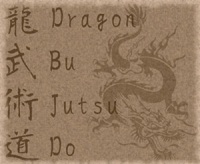 龍 Dragon
武 Bu
術 Jutsu
道 Do